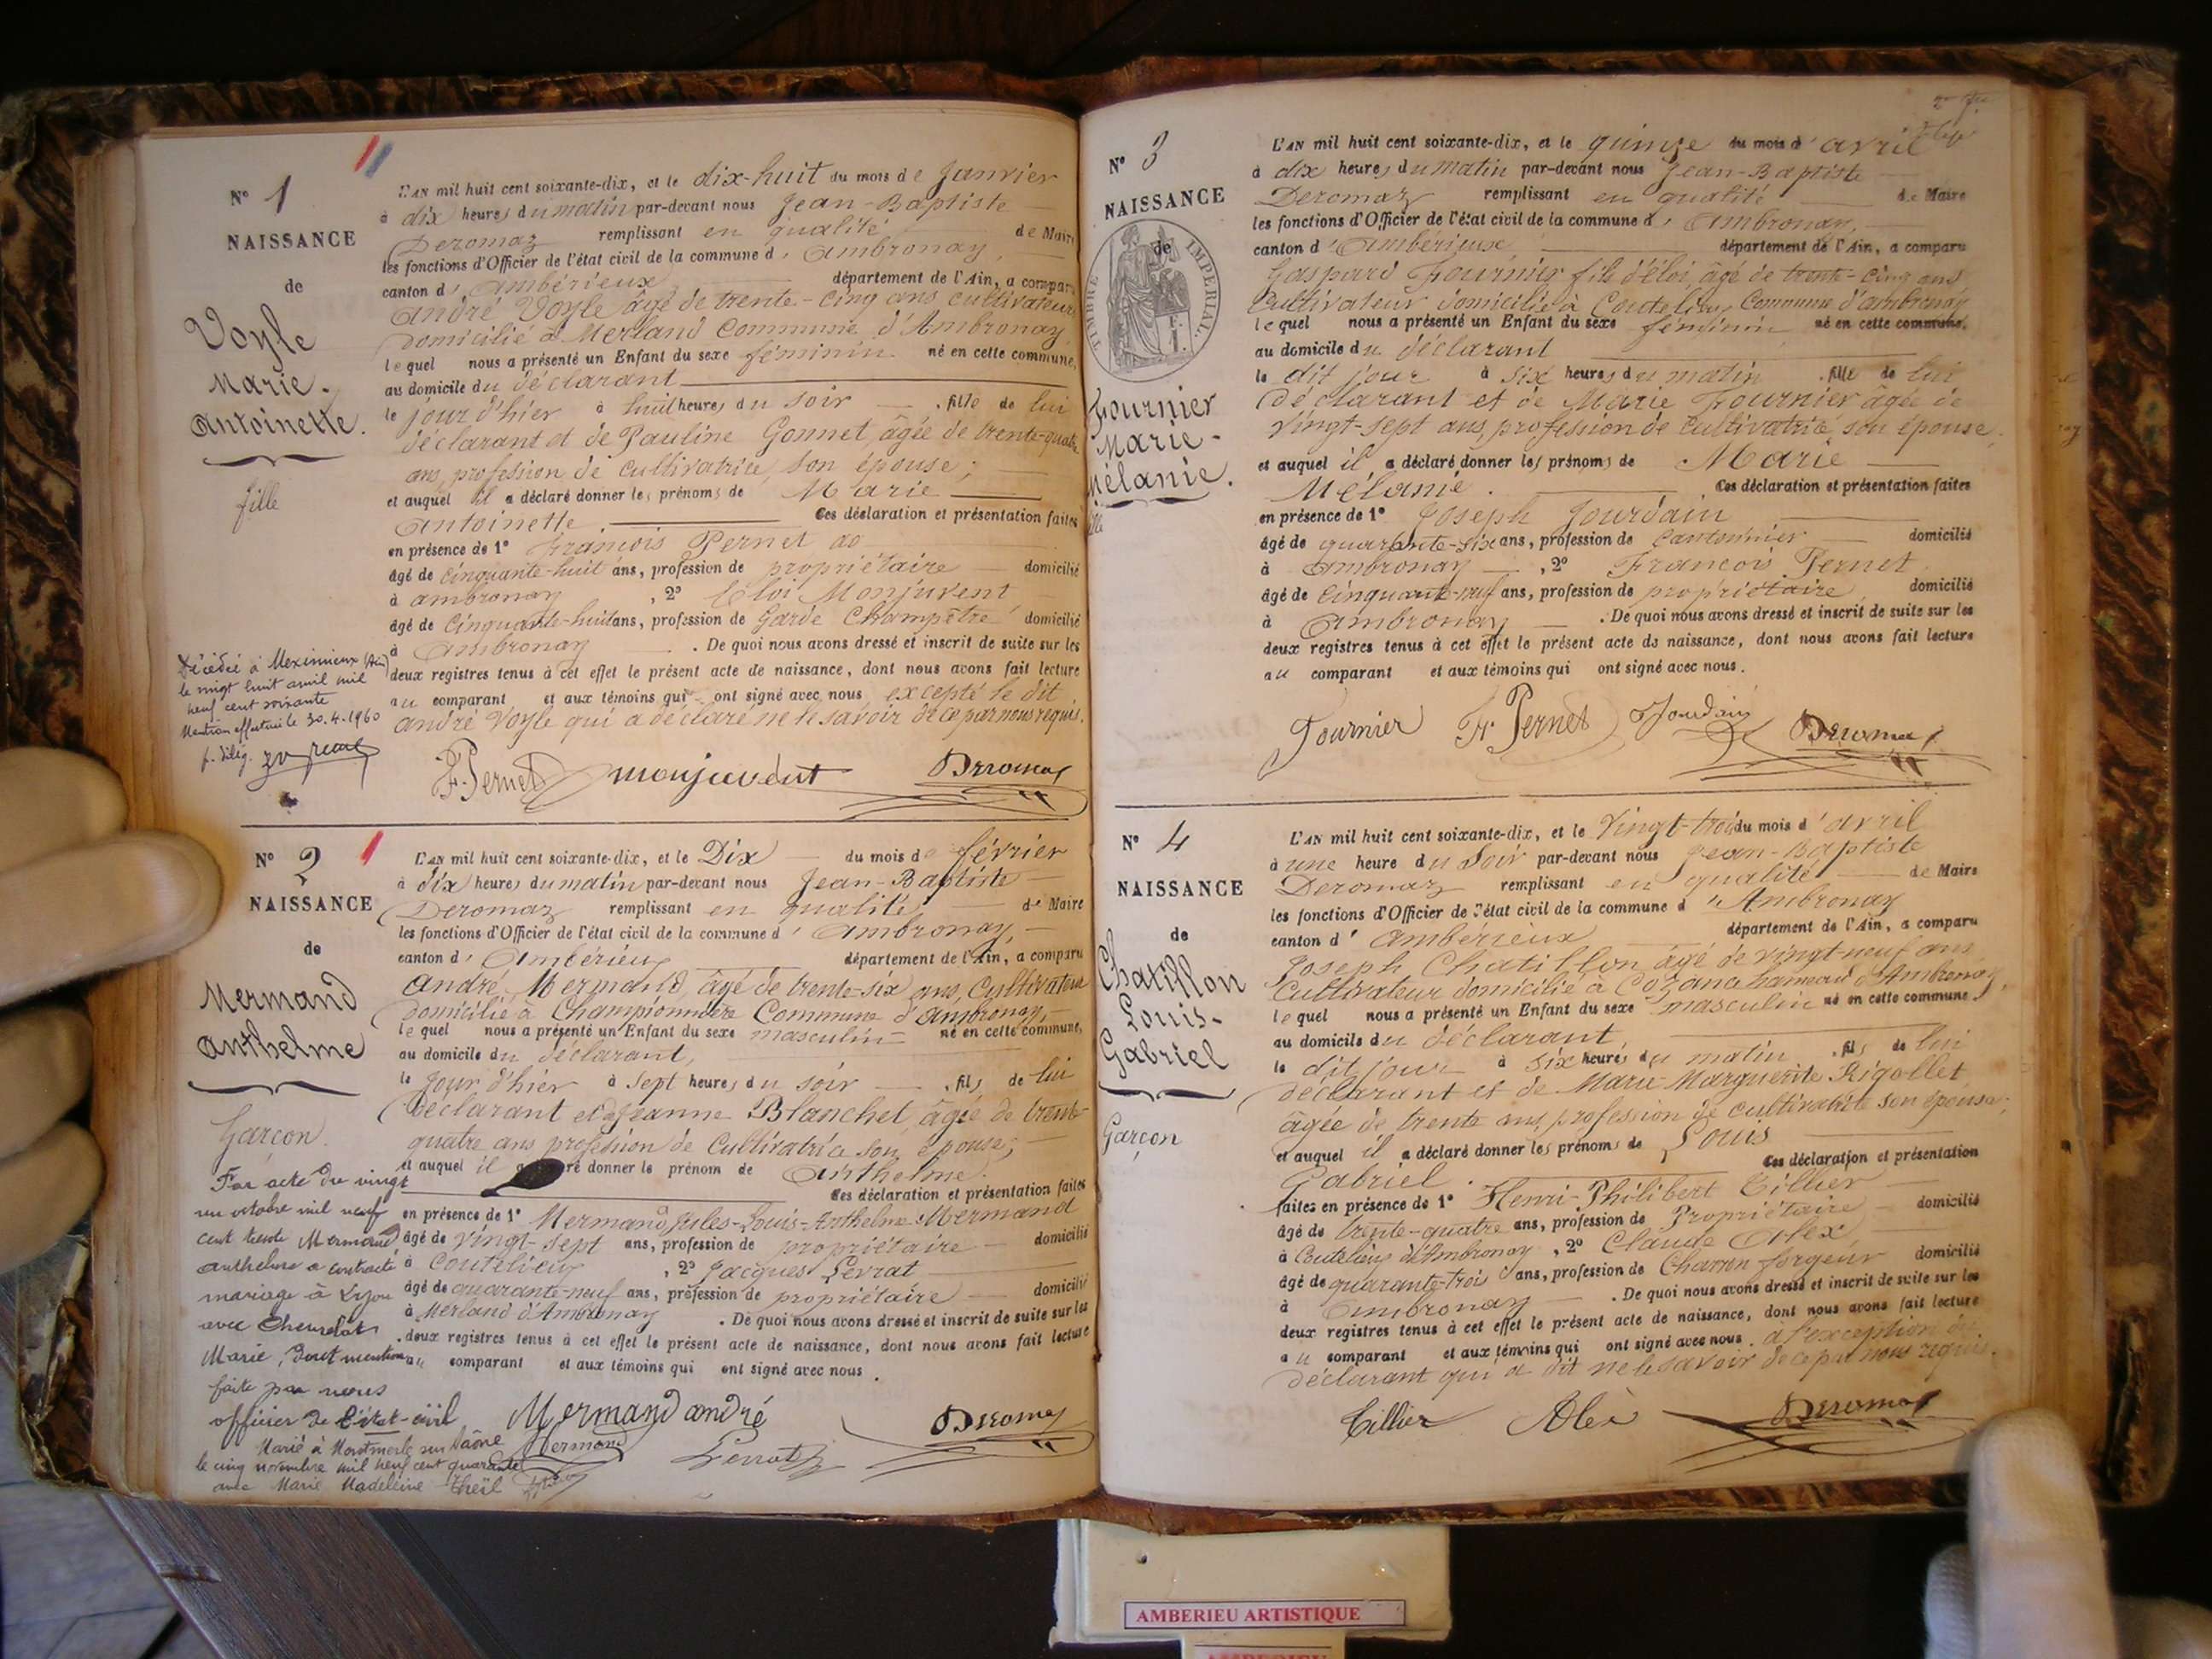 N° 1
NAISSANCE
de
Voyle
Marie-
Antoinette.
fille
L'AN mil huit cent soixante-dix, et le dix-huit du mois de Janvier
à dix heures du matin par-devant nous Jean-Baptiste
Deromaz remplissant en qualité de Maire
les fonctions d'Officier de l'état civil de la commune d'Ambronay,
canton d'Ambérieux département de l'Ain, a comparu
André Voyle âgé de trente-cinq ans cultivateur
domicilié à Merland Commune d'Ambronay
lequel nous a présenté un Enfant du sexe féminin né en cette commune,
au domicile du déclarant
le jour d'hier à huit heures du soir , fille de lui
déclarant et de Pauline Gonnet, âgée de trente-quatre
ans, profession de cultivatrice, son épouse;
et auquel il a déclaré donner les prénoms de Marie
Antoinette. Ces déclaration et présentation faites
en présence de 1° François Pernet
âgé de cinquante-huit ans, profession de propriétaire domicilié
à ambronay , 2° Eloi Monjuvent
âgé de Cinquante-huit ans, profession de Garde Champêtre domicilié
à Ambronay . De quoi nous avons dressé et inscrit de suite sur les
deux registres tenus à cet effet le présent acte de naissance, dont nous avons fait lecture
au comparant et aux témoins qui ont signé avec nous excepté le dit
André Voyle qui a déclaré ne le savoir de ce par nous requis.
Décédée à Meximieux (Ain)
le vingt huit avril mil
neuf cent soixante
Mention effectuée le 30.4.1960
F. Pernet monjuvent Deromaz
N° 2
NAISSANCE
de
Mermand
Anthelme
Garçon.
L'AN mil huit cent soixante-dix, et le Dix du mois de février
à dix heures du matin par-devant nous Jean-Baptiste
Deromaz remplissant en qualité de Maire
les fonctions d'Officier de l'état civil de la commune d'Ambronay,
canton d'Ambérieux département de l'Ain, a comparu
André Mermand, âgé de trente-six ans, Cultivateur
domicilié à Championnière Commune d'Ambronay,
lequel nous a présenté un Enfant du sexe masculin né en cette commune,
au domicile du déclarant,
le Jour d'hier à sept heures du soir , fils de lui
déclarant et de Jeanne Blanchet, âgée de trente-
quatre ans profession de Cultivatrice son épouse;
et auquel il a ré donner le prénom de Anthelme.
Ces déclaration et présentation faites
en présence de 1° Mermand Jules-Louis-Anthelme Mermand
âgé de vingt-sept ans, profession de propriétaire domicilié
à Coutelieu , 2° Jacques Levrat
âgé de quarante-neuf ans, profession de propriétaire domicilié
à Merland d'Ambronay . De quoi nous avons dressé et inscrit de suite sur les
deux registres tenus à cet effet le présent acte de naissance, dont nous avons fait lecture
au comparant et aux témoins qui ont signé avec nous .
Par acte du vingt
un octobre mil neuf
cent trente Mermand
anthelme a contracté
mariage à Lyon
avec
Marie, dont mention
faite par nous
officier de l'état-civil
Marié à Montmerle sur Saône
le cinq novembre mil neuf cent quarante
avec Marie Madeleine Theil
Mermand andré Deromaz
Mermand Levrat
N° 3
NAISSANCE
de
TIMBRE IMPERIAL.
Fournier
Marie-
Mélanie.
L'AN mil huit cent soixante-dix, et le quinze du mois d'avril
à dix heures du matin par-devant nous Jean-Baptiste
Deromaz remplissant en qualité de Maire
les fonctions d'Officier de l'état civil de la commune d'Ambronay,
canton d'Ambérieux département de l'Ain, a comparu
Gaspard Fournier fils d'éloi, âgé de trente-cinq ans
Cultivateur domicilié à Coutelieu, Commune d'ambronay
lequel nous a présenté un Enfant du sexe féminin né en cette commune,
au domicile du déclarant
le dit jour à six heures du matin , fille de lui
déclarant et de Marie Fournier âgée de
vingt-sept ans, profession de cultivatrice son épouse.
et auquel il a déclaré donner les prénoms de Marie
Mélanie. Ces déclaration et présentation faites
en présence de 1° Joseph Jourdain
âgé de quarante-six ans, profession de Cantonnier domicilié
à Ambronay , 2° François Pernet
âgé de cinquante-neuf ans, profession de propriétaire domicilié
à Ambronay . De quoi nous avons dressé et inscrit de suite sur les
deux registres tenus à cet effet le présent acte de naissance, dont nous avons fait lecture
au comparant et aux témoins qui ont signé avec nous .
Fournier Fr Pernet Jourdain Deromaz
N° 4
NAISSANCE
de
Chatillon
Louis-
Gabriel
Garçon
L'AN mil huit cent soixante-dix, et le Vingt-trois du mois d'avril
à une heure du Soir par-devant nous Jean-Baptiste
Deromaz remplissant en qualité de Maire
les fonctions d'Officier de l'état civil de la commune d'Ambronay
canton d'Ambérieux département de l'Ain, a comparu
Joseph Chatillon âgé de vingt-neuf ans
Cultivateur domicilié à Cozance hameau d'Ambronay,
lequel nous a présenté un Enfant du sexe masculin né en cette commune,
au domicile du déclarant,
le dit jour à six heures du matin , fils de lui
déclarant et de Marie Marguerite Rigollet
âgée de trente ans, profession de cultivatrice son épouse;
et auquel il a déclaré donner les prénoms de Louis
Gabriel . Ces déclaration et présentation
faites en présence de 1° Henri-Philibert Tillier
âgé de trente-quatre ans, profession de Propriétaire domicilié
à Coutelieu d'Ambronay , 2° Claude Alex
âgé de quarante-trois ans, profession de Charron forgeur domicilié
à Ambronay . De quoi nous avons dressé et inscrit de suite sur les
deux registres tenus à cet effet le présent acte de naissance, dont nous avons fait lecture
au comparant et aux témoins qui ont signé avec nous . à l'exception du
déclarant qui a dit ne le savoir de ce par nous requis.
Tillier Alex Deromaz
AMBERIEU ARTISTIQUE